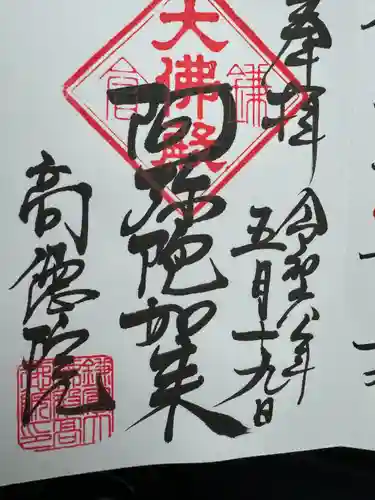 奉拝
令和六年
五月十九日
大佛殿
鎌
倉
阿弥陀如来
高徳院